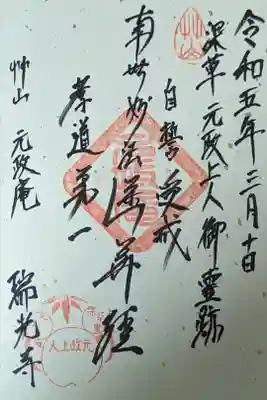 令和五年三月十日
深草 元政上人 御霊跡
自誓受戒
南無妙法蓮華経
孝道第一
艸山 元政庵
瑞光寺
元政上人